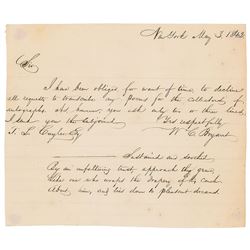 New York May 3, 1862
Sir,
I have been obliged for want of time, to decline
all requests to transcribe my poems for the collectors of
autographs. As, however, you ask only two or three lines,
I send you the subjoined.
Yours respectfully
W. C. Bryant
T. L. Cuyler Esq
Sustained and soothed
By an unfaltering trust approach thy grave,
Like one who wraps the drapery of his couch
About him, and lies down to pleasant dreams.